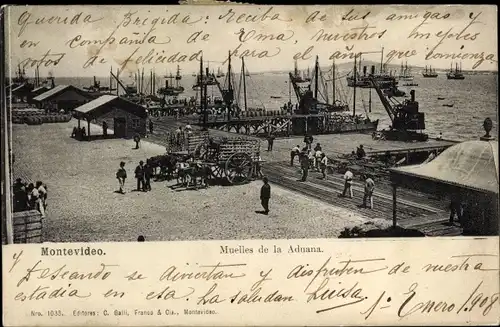 Querida Brigida: Reciba de sus amigas y
en compañia de Ema, nuestros mejores
votos de felicidad para el año que comienza
Montevideo.
Muelles de la Aduana.
y Deseando se diviertan y disfruten de nuestra
estadia en esa. La saludan Luisa, 1º Enero/1908
Nro. 1035. Editores: C. Galli, Franco & Cia., Montevideo.